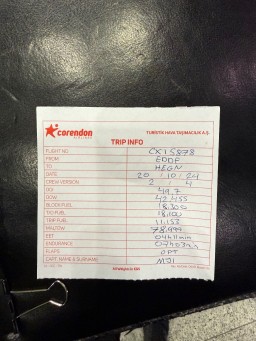 corendon
AIRLINES
TURİSTİK HAVA TAŞIMACILIK A.Ş.
TRIP INFO
FLIGHT NO. CXI 5878
FROM EDDP
TO HEGN
DATE 20 / 10 / 24
CREW VERSION 2 4
DOI 49.7
DOW 42.455
BLOCK FUEL 18.300
T/O FUEL 18.100
TRIP FUEL 11.153
MALTOW 78.999
EET 04h11min
ENDURANCE 07h03min
FLAPS OPT
CAPT. NAME & SURNAME MJI